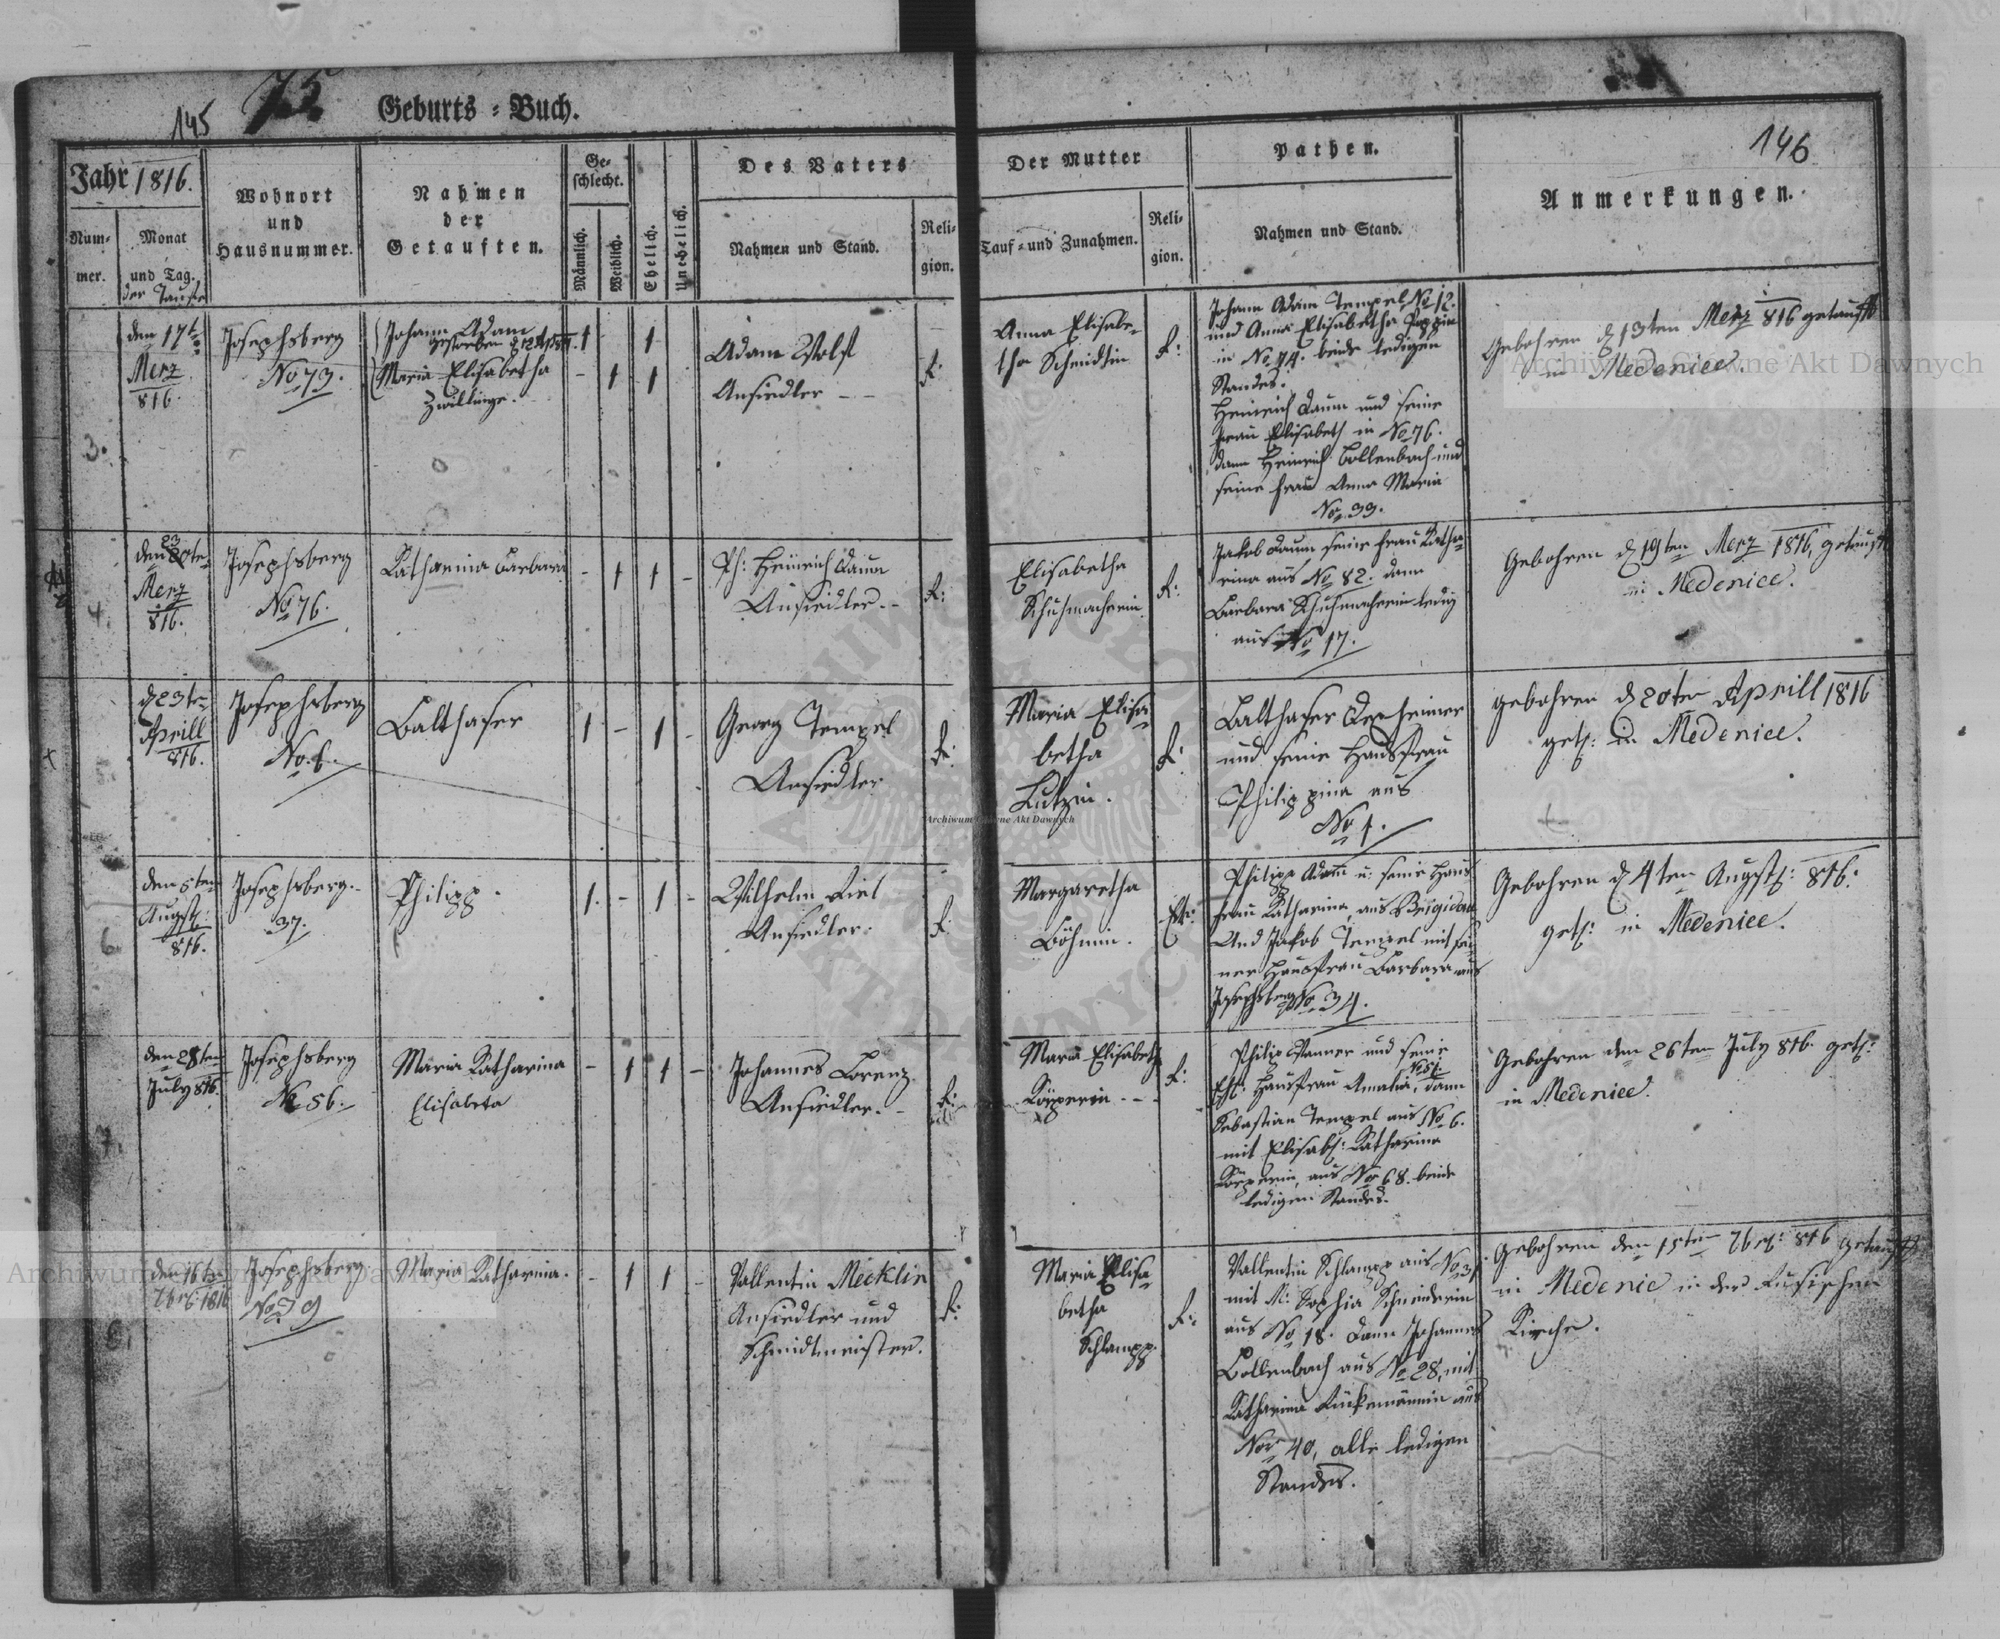 145
75
Geburts = Buch.
146
Jahr 1816.
Num-
mer.
Monat
und Tag.
der Taufe
Wohnort
und
Hausnummer.
Nahmen
der
Getauften.
Ge-
schlecht.
Männlich.
Weiblich.
Ehelich.
Unehelich.
Des Vaters
Nahmen und Stand.
Reli-
gion.
Der Mutter
Tauf = und Zunahmen.
Reli-
gion.
Pathen.
Nahmen und Stand.
Anmerkungen.
3.
den 17t
Merz
816.
Josephsberg
No 73.
Johann Adam
gestorben
Maria Elisabetha
Zwillinge.
1
1
- 1 1
Adam Wolf
Ansiedler
R:
Anna Elisabe-
tha Schmidtin
R:
Johann Adam Tempel No 12.
und Anna Elisabetha
in No 74. beide ledigen
Standes.
Heinrich Daum und seine
Frau Elisabeth in No 76.
dann Heinrich Bollenbach und
seine Frau Anna Maria
No 33.
Gebohren d 13ten Merz 816 getauft
in Medenice.
4.
den 23ten
Merz
816.
Josephsberg
No 76.
Katharina Barbara
- 1 1 -
Ph: Heinrich Daum
Ansiedler.
R:
Elisabetha
Schuhmacherin
R:
Jakob Daum seine Frau Katha-
rina aus No 82. dann
Barbara Schuhmacherin ledig
aus No 17.
Gebohren d 19ten Merz 1816, getauft
in Medenice.
5.
d 23ten
Aprill
816.
Josephsberg
No. 6.
Balthaser
1 - 1 -
Georg Tempel
Ansiedler
R:
Maria Elisa
betha
Lutzin.
R:
Balthaser
und seine Hausfrau
Philippina aus
No 1.
gebohren d 20ten Aprill 1816
get: in Medenice.
6.
den 5ten
Augst:
816.
Josephsberg.
37.
Philipp.
1. - 1 -
Wilhelm
Ansiedler.
R:
Margaretha
Böhmin.
Philipp Adam u: seine Haus
frau Katharina, aus Brigidau
Und Jakob Tempel mit sei
ner Hausfrau Barbara aus
Josephsberg No 34.
Gebohren d 4ten Augst: 816.
get: in Medenice.
7.
den 28ten
July 816.
Josephsberg
No 56.
Maria Katharina
Elisabeta
- 1 1 -
Johannes Lorenz
Ansiedler.
R:
Maria Elisabeth
Köpperin
R:
Philip Wanner und seine
Hausfrau Amalia, dann
Sebastian Tempel aus No 6.
mit Elisab: Katharina
Köpperin, aus No 68. beide
ledigen Standes.
Gebohren den 26ten July 816. get:
in Medenice.
8.
den 16ten
7br: 1816
Josephsberg
No 79
Maria Katharina.
- 1 1 -
Vallentin Mecklin
Ansiedler und
Schmidtmeister.
R:
Maria Elisa
betha
Schlampp.
R:
Vallentin Schlampp aus No 31.
mit M: Sophia Schneiderin
aus No 18. dann Johannes
Bollenbach aus No 28, mit
Katharina Rückemännin aus
No 40, alle ledigen
Standes.
Gebohren den 15ten 7br: 816 getauft
in Medenice in der Rusischen
Kirche.
Archiwum Główne Akt Dawnych
Archiwum Główne Akt Dawnych
Archiwum Główne Akt Dawnych